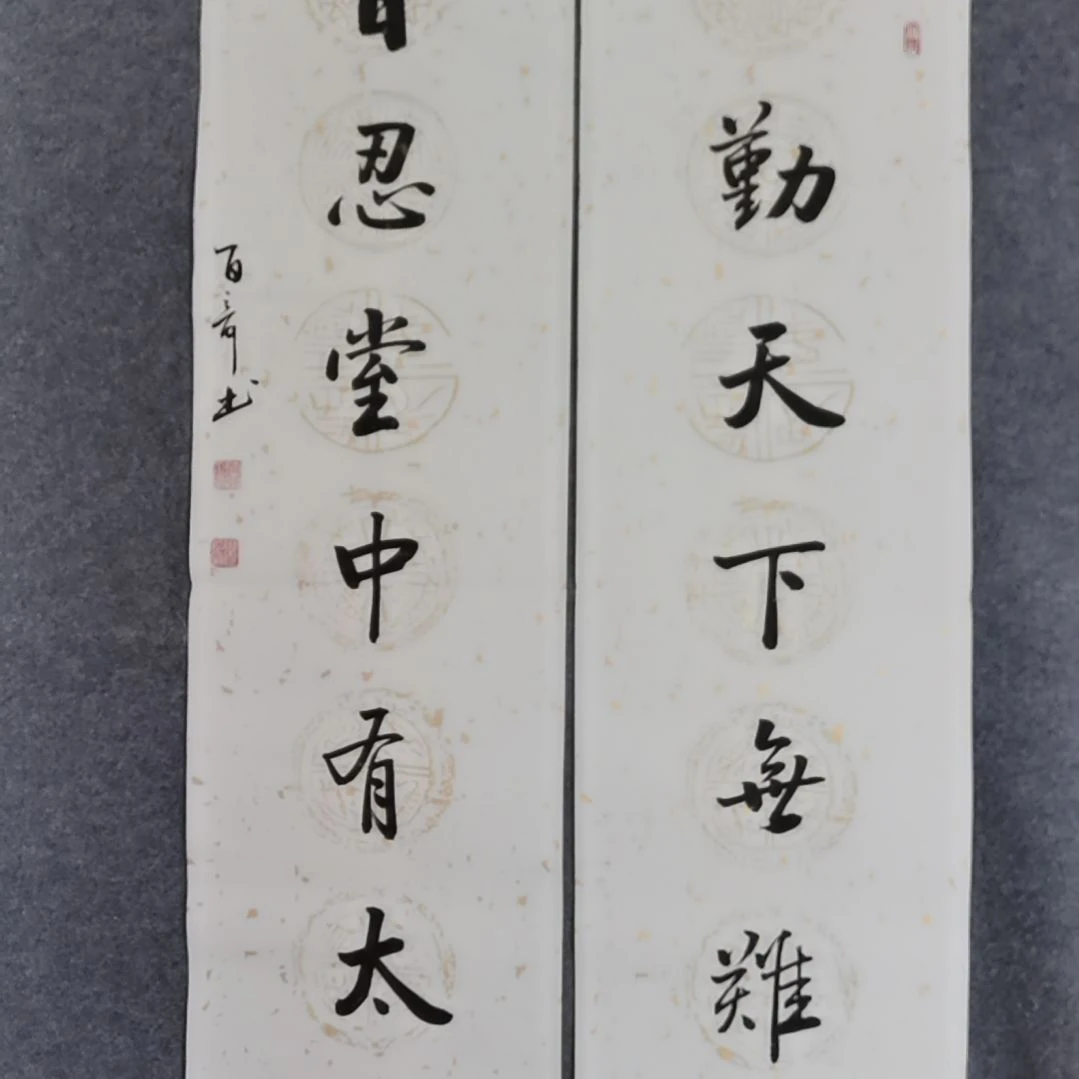 勤天下無難
忍堂中有太
百奇书